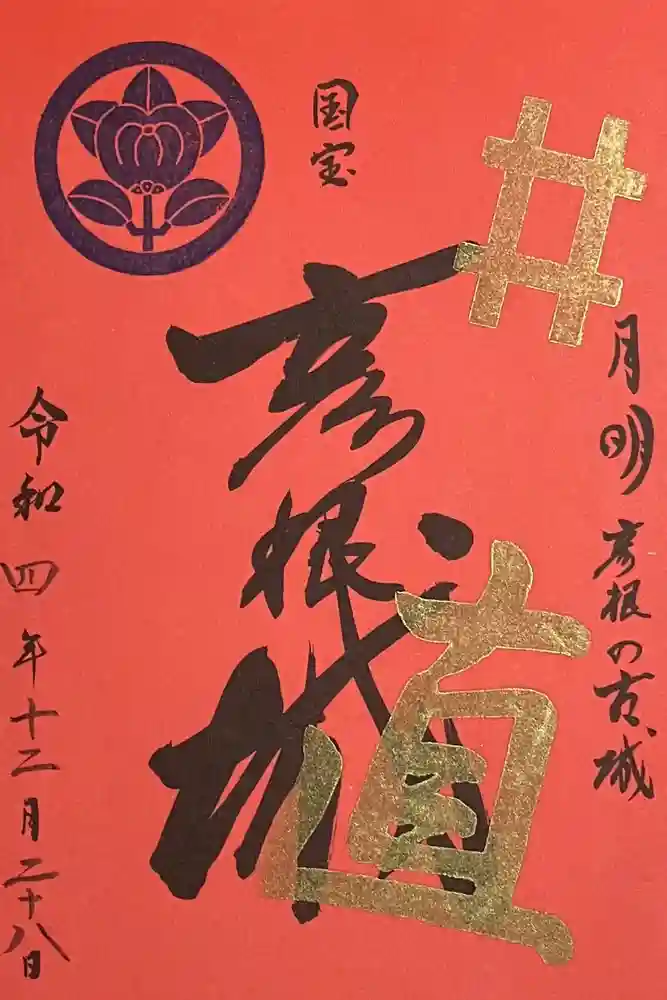 月明彦根の古城
井
直
国宝
彦根城
令和四年十二月二十八日